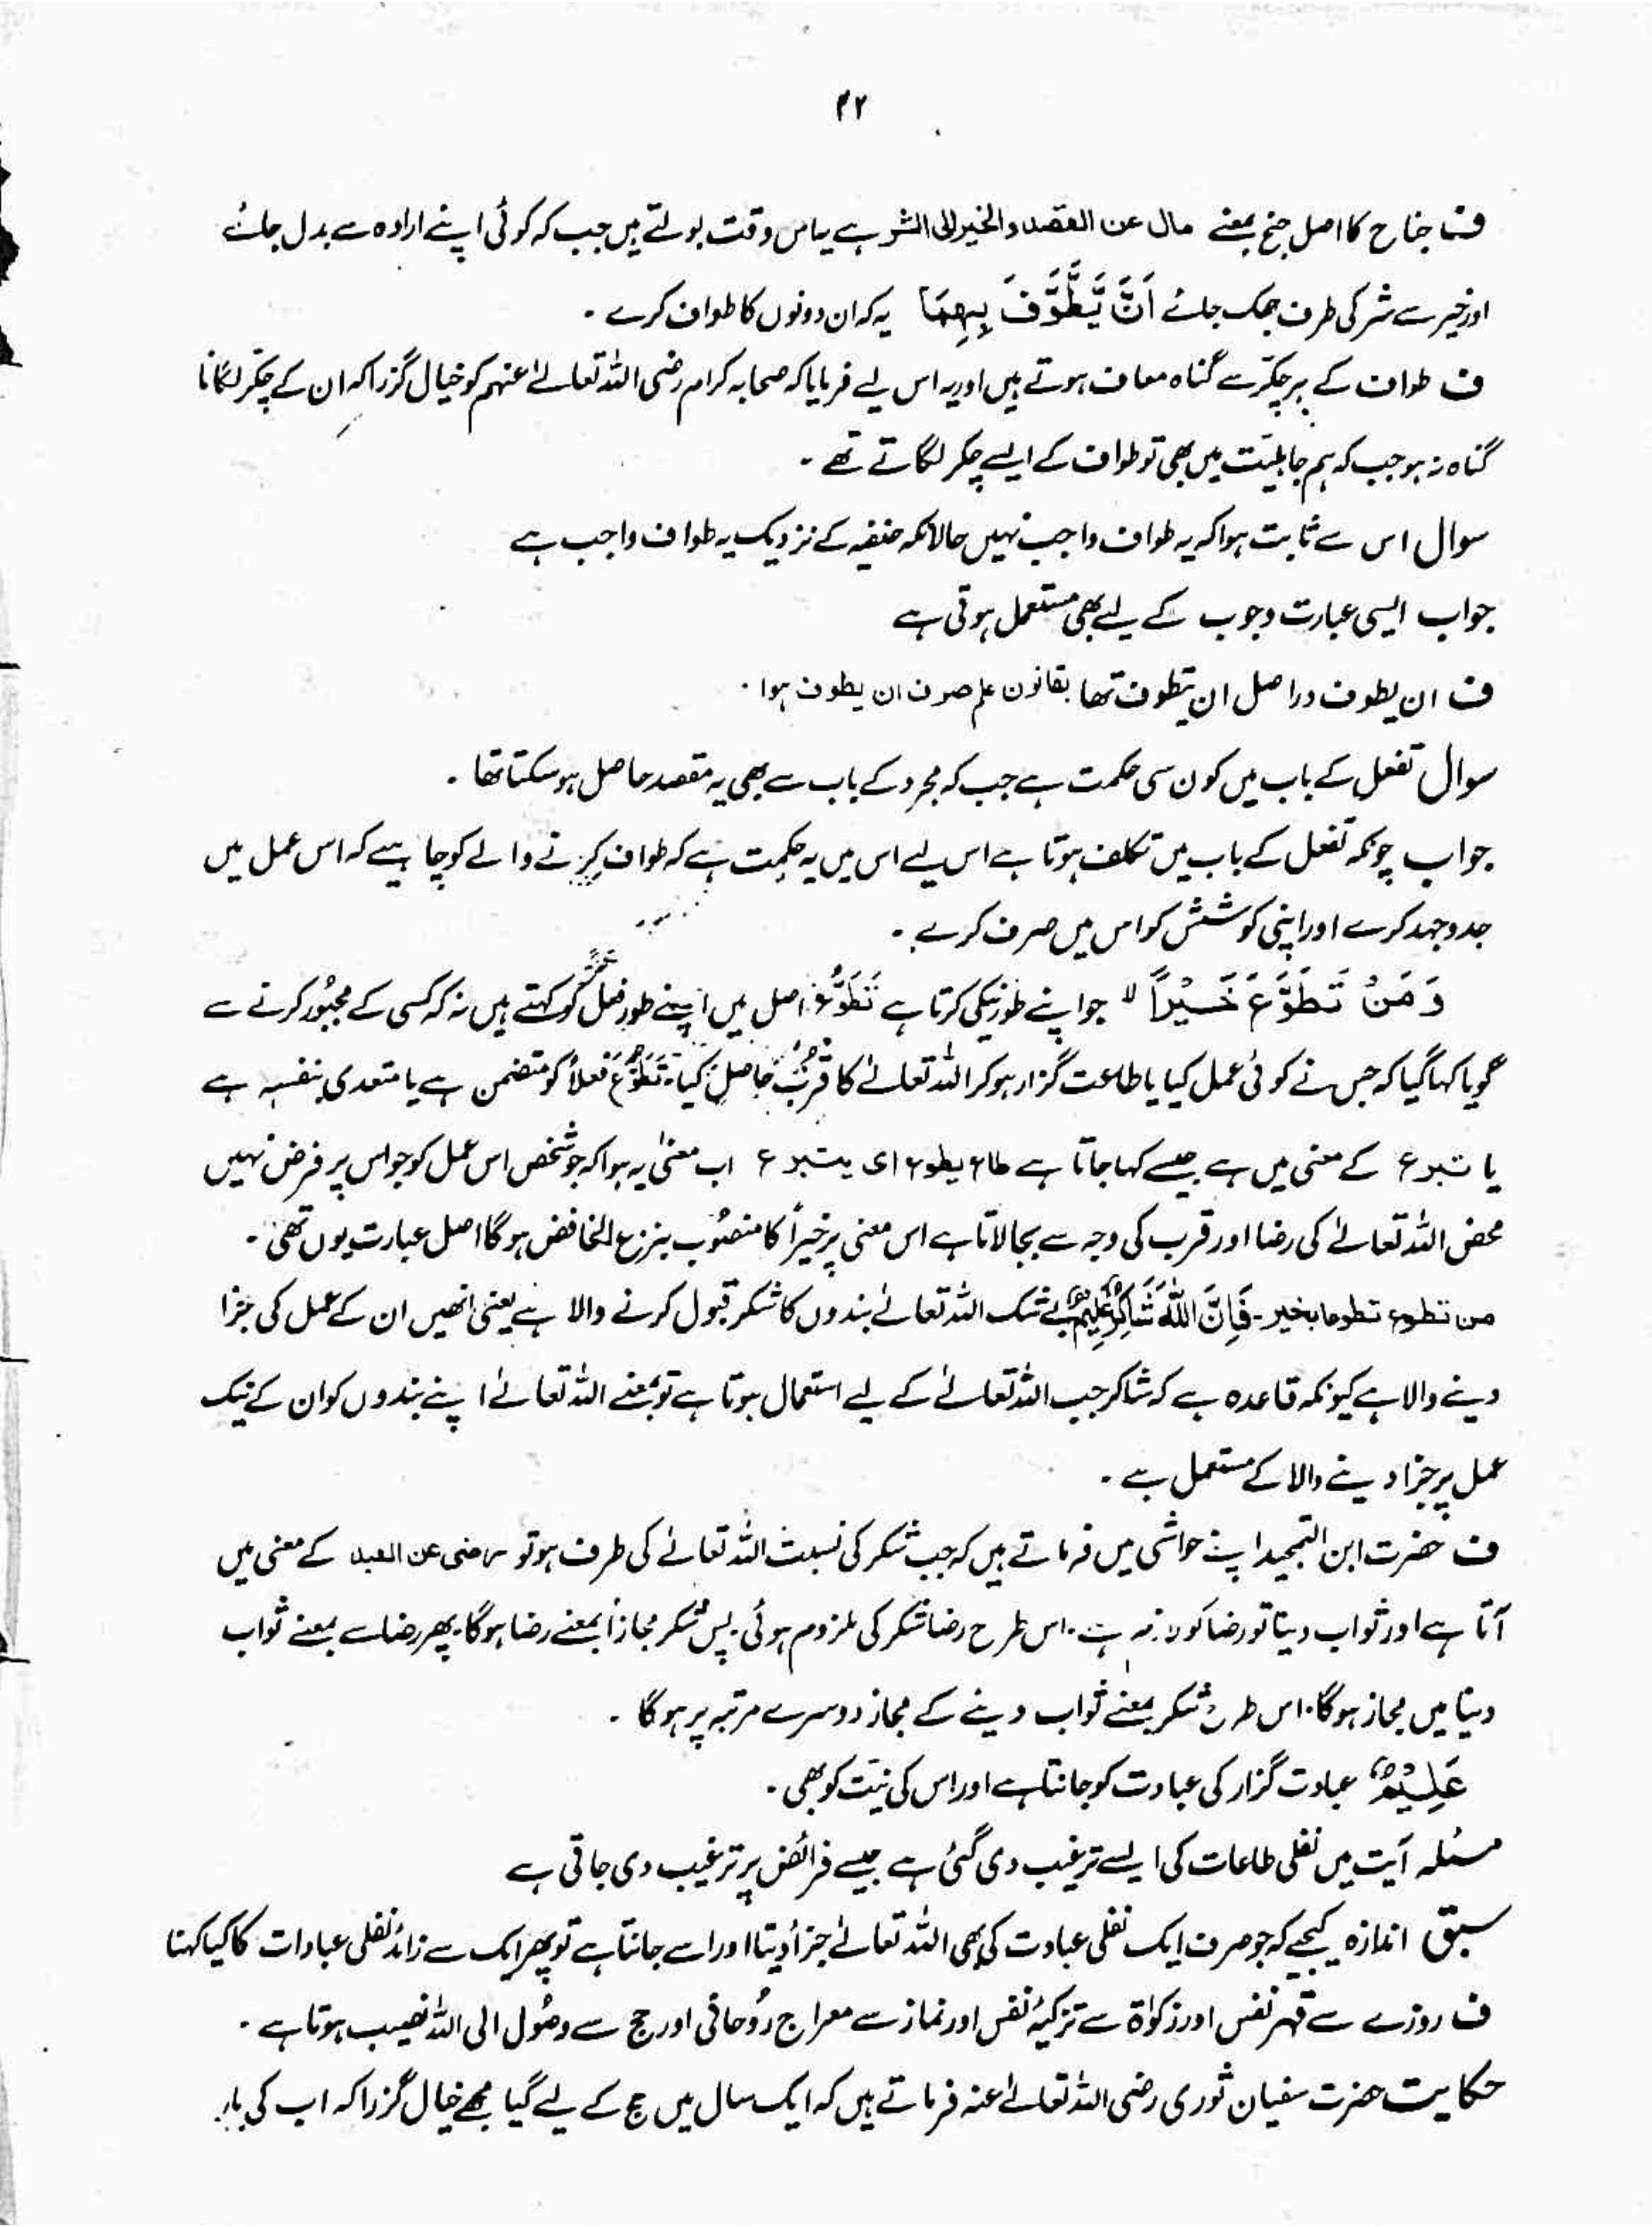 ۴۲
ف جناح کا اصل جنح بمعنے مال عن القصد والخیر الی الشر ہے یہ اس وقت بولتے ہیں جب کہ کوئی اپنے ارادہ سے بدل جائے
اور خیر سے شر کی طرف جھک جائے اَنْ یَّطَّوَّفَ بِہِمَا یہ کہ ان دونوں کا طواف کرے ۔
ف طواف کے ہر چکر سے گناہ معاف ہوتے ہیں اور یہ اس لیے فرمایا کہ صحابہ کرام رضی اللہ تعالےٰ عنہم کو خیال گزرا کہ ان کے چکر لگانا
گناہ نہ ہو جب کہ ہم جاہلیت میں بھی تو طواف کے ایسے چکر لگاتے تھے ۔
سوال اس سے ثابت ہوا کہ یہ طواف واجب نہیں حالانکہ حنفیہ کے نزدیک یہ طواف واجب ہے
جواب ایسی عبارت وجوب کے لیے بھی مستعمل ہوتی ہے
ف ان یطوف دراصل ان یتطوف تھا بقانون علم صرف ان یطوف ہوا ۔
سوال تفعل کے باب میں کون سی حکمت ہے جب کہ مجرد کے باب سے بھی یہ مقصد حاصل ہو سکتا تھا ۔
جواب چونکہ تفعل کے باب میں تکلف ہوتا ہے اس لیے اس میں یہ حکمت ہے کہ طواف کرنے والے کو چاہیے کہ اس عمل میں
جدوجہد کرے اور اپنی کوشش کو اس میں صرف کرے ۔
وَمَنْ تَطَوَّعَ خَیْرًا لا جو اپنے طور نیکی کرتا ہے تَطَوُّع اصل میں اپنے طور فعل کو کہتے ہیں نہ کہ کسی کے مجبور کرنے سے
گویا کہا گیا کہ جس نے کوئی عمل کیا یا طاعت گزار ہو کر اللہ تعالےٰ کا قرب حاصل کیا ۔ تَطَوُّع فعلاً کو متضمن ہے یا متعدی بنفسہ ہے
یا تبرع کے معنی میں ہے جیسے کہا جاتا ہے طاع یطوع ای یتبرع اب معنیٰ یہ ہوا کہ جو شخص اس عمل کو جو اس پر فرض نہیں
محض اللہ تعالےٰ کی رضا اور قرب کی وجہ سے بجالاتا ہے اس معنی پر خیراً کا منصوب بنزع الخافض ہوگا اصل عبارت یوں تھی ۔
من تطوع تطوعا بخیر ۔ فَاِنَّ اللّٰہَ شَاکِرٌ عَلِیْمٌ بے شک اللہ تعالےٰ بندوں کا شکر قبول کرنے والا ہے یعنی انھیں ان کے عمل کی جزا
دینے والا ہے کیونکہ قاعدہ ہے کہ شاکر جب اللہ تعالےٰ کے لیے استعمال ہوتا ہے تو بمعنے اللہ تعالےٰ اپنے بندوں کو ان کے نیک
عمل پر جزا دینے والا کے مستعمل ہے ۔
ف حضرت ابن التمجید اپنے حواشی میں فرماتے ہیں کہ جب شکر کی نسبت اللہ تعالےٰ کی طرف ہو تو رضی عن العبد کے معنی میں
آتا ہے اور ثواب دینا تو رضا کو ہے ۔ اس طرح رضا شکر کی ملزوم ہوئی ۔ پس شکر مجازاً بمعنے رضا ہوگا ۔ پھر رضا سے بمعنے ثواب
دینا میں مجاز ہوگا ۔ اس طرح شکر بمعنے ثواب دینے کے مجاز دوسرے مرتبہ پر ہوگا ۔
عَلِیْمٌ عبادت گزار کی عبادت کو جانتا ہے اور اس کی نیت کو بھی ۔
مسئلہ آیت میں نفلی طاعات کی ایسے ترغیب دی گئی ہے جیسے فرائض پر ترغیب دی جاتی ہے
سبق اندازہ کیجیے کہ جو صرف ایک نفلی عبادت کی بھی اللہ تعالےٰ جزا دیتا اور اسے جانتا ہے تو پھر ایک سے زائد نفلی عبادات کا کیا کہنا
ف روزے سے قہر نفس اور زکوٰۃ سے تزکیۂ نفس اور نماز سے معراج رُوحانی اور حج سے وصُول الی اللہ نصیب ہوتا ہے ۔
حکایت حضرت سفیان ثوری رضی اللہ تعالےٰ عنہ فرماتے ہیں کہ ایک سال میں حج کے لیے گیا مجھے خیال گزرا کہ اب کی بار